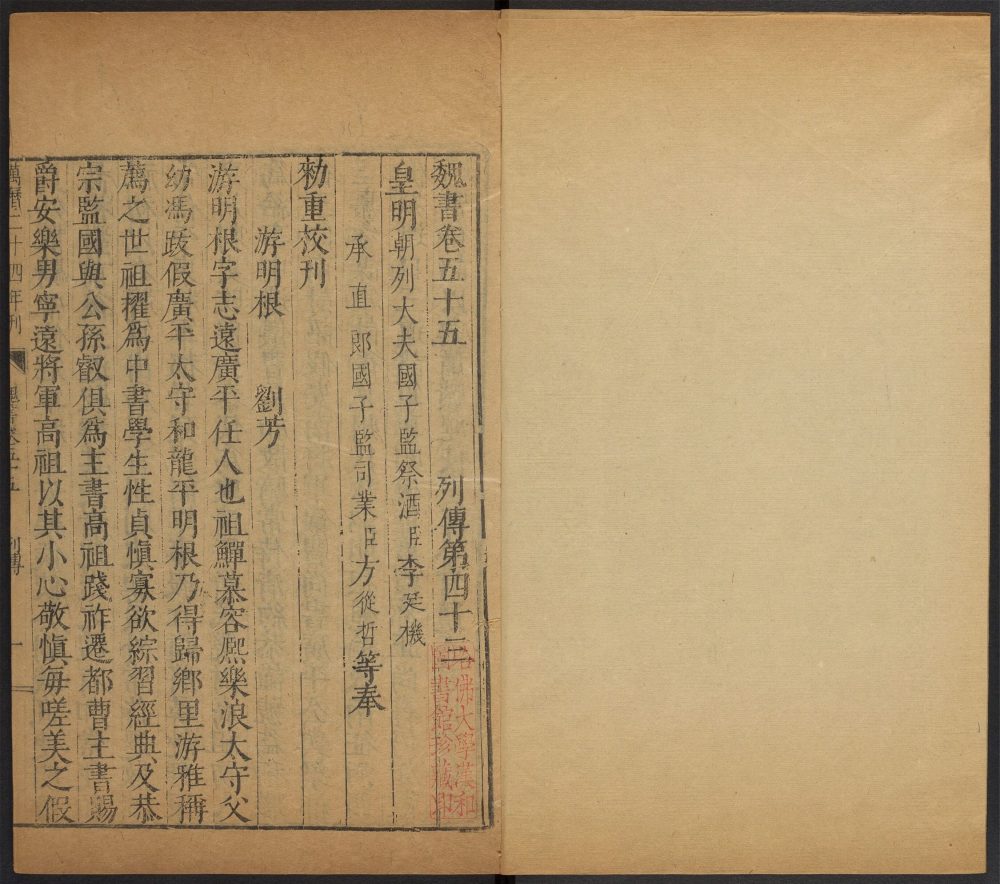 魏書卷五十五　列傳第四十三
皇明朝列大夫國子監祭酒臣李廷機
承直郎國子監司業臣方從哲等奉
勑重校刊
游明根　劉芳
游明根字志遠廣平任人也祖鱓慕容熈樂浪太守父
幼馮跋假廣平太守和龍平明根乃得歸鄉里游雅稱
薦之世祖擢爲中書學生性貞愼寡欲綜習經典及恭
宗監國與公孫叡俱爲主書高祖踐祚遷都曹主書賜
爵安樂男寧遠將軍高祖以其小心敬愼每嗟美之假
萬曆二十四年刊　魏書卷五十五　列傳　一
哈佛大學漢和
圖書館珍藏印